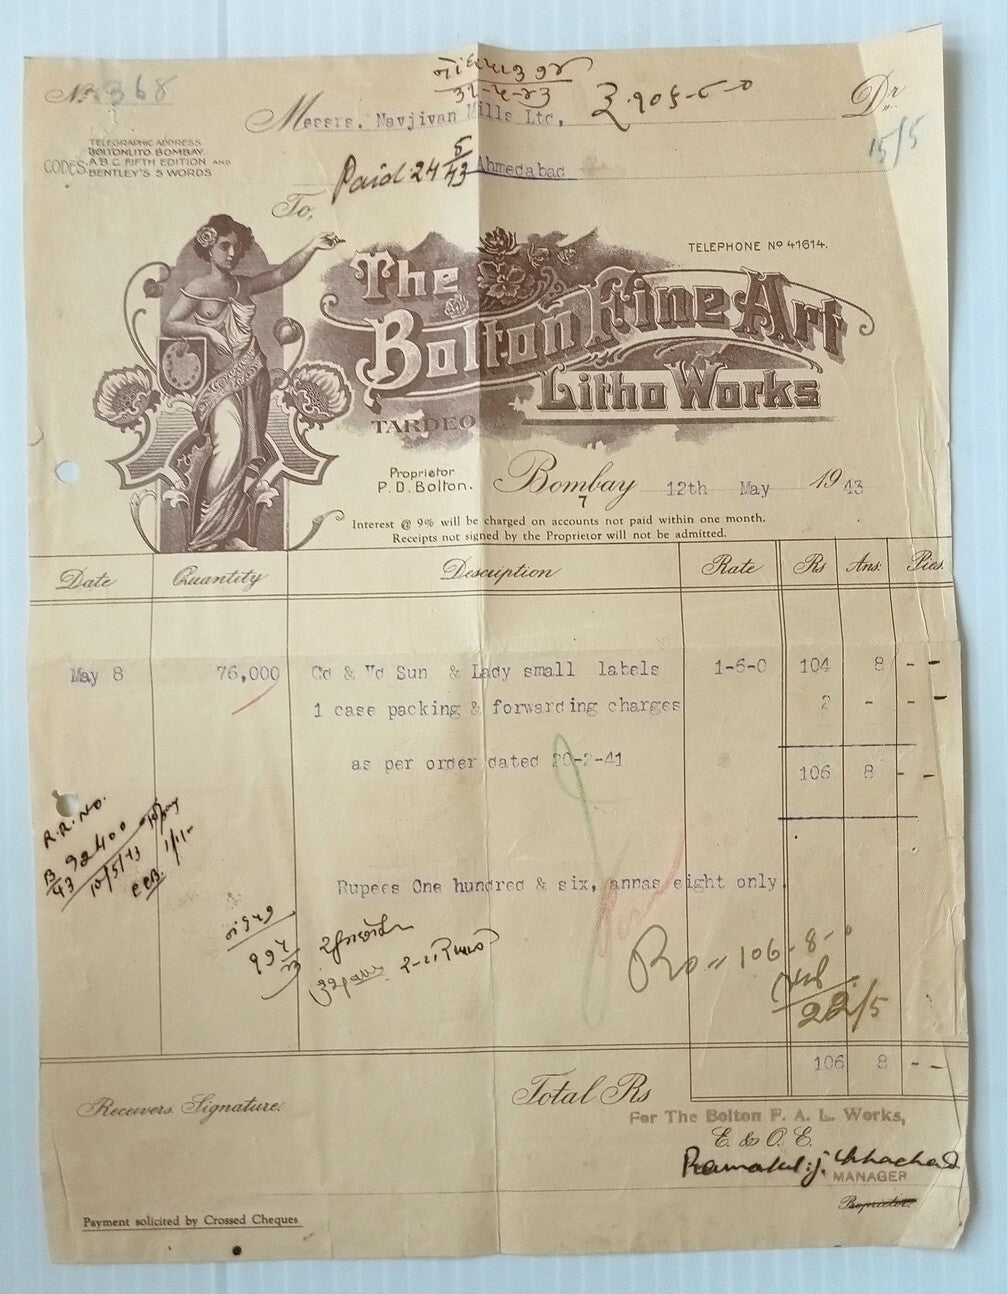 No 368
Messrs. Navjivan Mills Ltd,
Dr.
15/5
TELEGRAPHIC ADDRESS
BOLTONLITO BOMBAY.
CODES: A.B.C. FIFTH EDITION AND
BENTLEY'S 5 WORDS
Paid 24 5/43
Ahmedabad
To,
TELEPHONE No 41614.
The
Bolton Fine Art
Litho Works
TARDEO
Proprietor
P. D. Bolton.
Bombay 7 12th May 1943
Interest @ 9% will be charged on accounts not paid within one month.
Receipts not signed by the Proprietor will not be admitted.
Date Quantity Description Rate Rs Ans. Pies.
May 8 76,000 Cd & Vd Sun & Lady small labels 1-6-0 104 8 - -
1 case packing & forwarding charges 2 - - -
as per order dated 20-2-41
106 8 - -
R.R. No.
10/5/43
Rupees One hundred & six, annas eight only.
106-8-0
22/5
106 8 - -
Total Rs
Receivers Signature.
For The Bolton F. A. L. Works,
E. & O. E.
MANAGER
Proprietor.
Payment solicited by Crossed Cheques